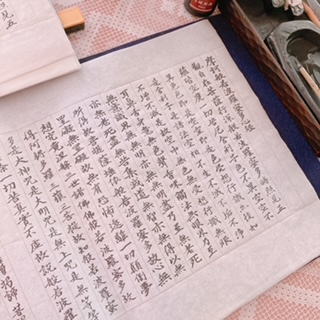 照見五
摩訶般若波羅蜜多心經
觀自在菩薩行深般若波羅蜜多時照見五
蘊皆空度一切苦厄舍利子色不異空空不
異色色即是空空即是色受想行識亦復如
是舍利子是諸法空相不生不滅不垢不淨
不增不減是故空中無色無受想行識無眼
耳鼻舌身意無色聲香味觸法無眼界乃至
無意識界無無明亦無無明盡乃至無老死
亦無老死盡無苦集滅道無智亦無得以無
所得故菩提薩埵依般若波羅蜜多故心無
罣礙無罣礙故無有恐怖遠離一切顛倒夢
想究竟涅槃三世諸佛依般若波羅蜜多故
得阿耨多羅三藐三菩提故知般若波羅蜜
多是大神咒是大明咒是無上咒是無
一切苦真實不虛故說般若波羅
揭諦